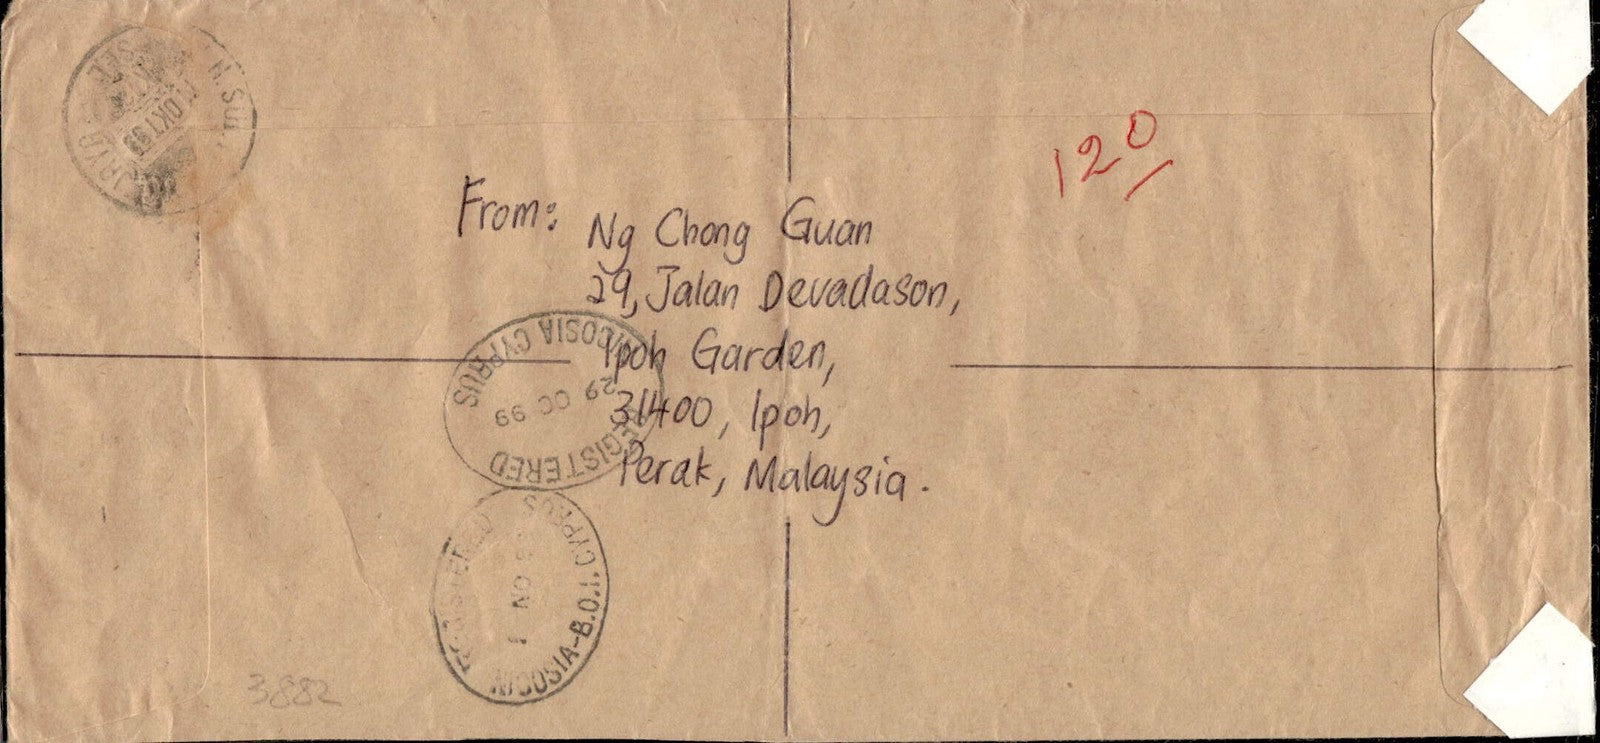 120
From: Ng Chong Guan
29, Jalan Devadason,
Ipoh Garden,
31400, Ipoh,
Perak, Malaysia.
NICOSIA CYPRUS
29 OC 99
REGISTERED
NICOSIA-B.O.I. CYPRUS
1 NO
OKT 99
3882